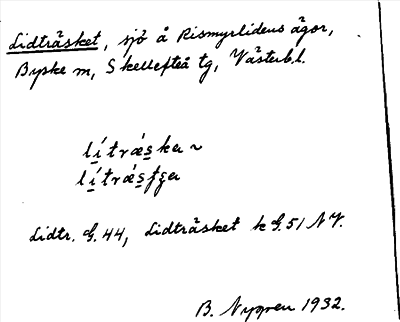 Lidträsket, sjö å Rismyrlidens ägor,
Byske sn, Skellefteå tg, Västerb.l.
lítræ̀ska ~
lítrásʈʂa
Lidtr. G.44, Lidträsket k G.51 NV.
B. Nygren 1932.